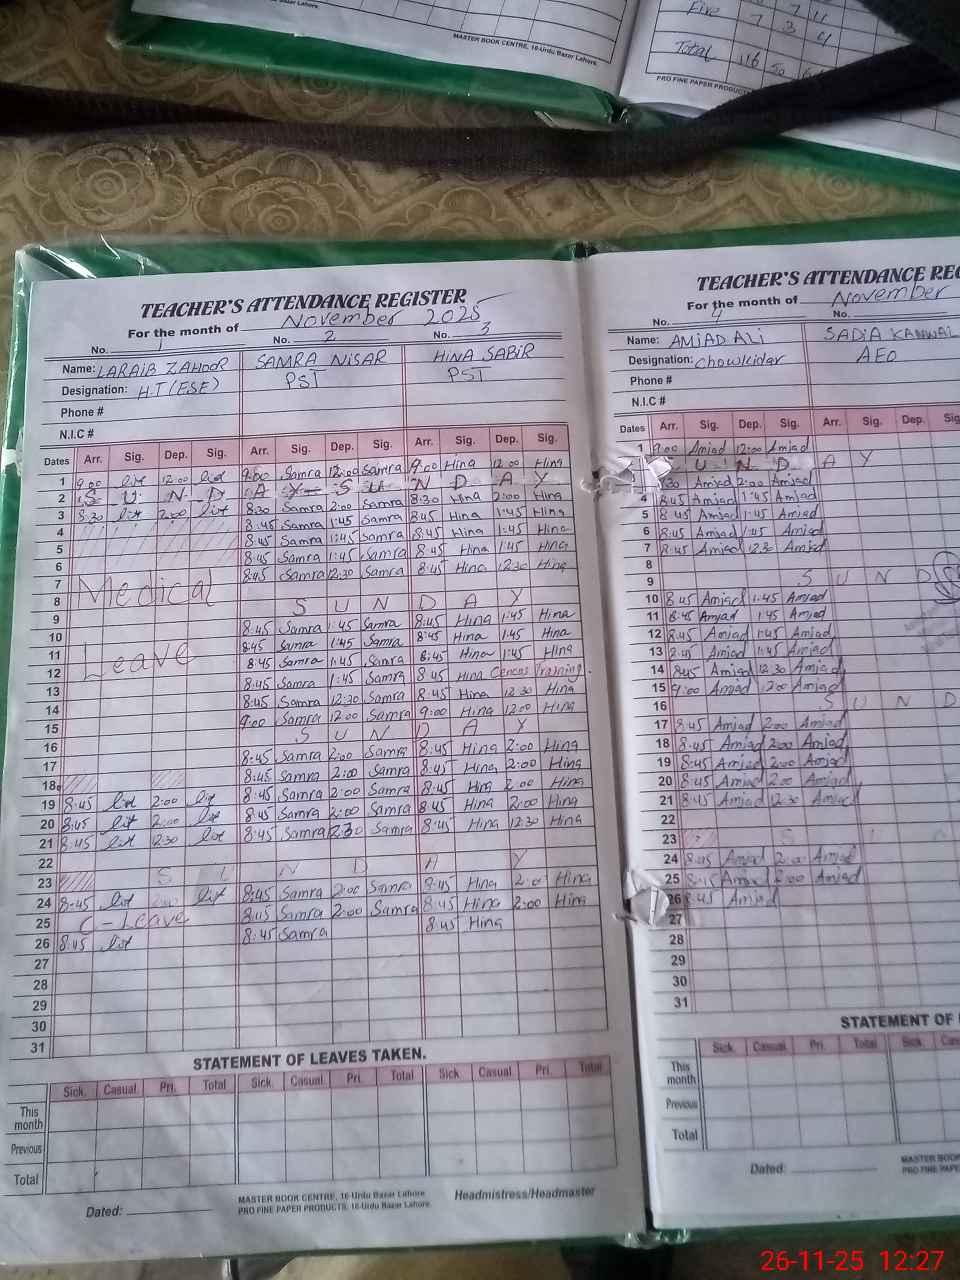 MASTER BOOK CENTRE, 16-Urdu Bazar Lahore.
Five 7 7 11
3 4
Total 116 50
PRO FINE PAPER PRODUCTS
TEACHER'S ATTENDANCE REGISTER
For the month of November 2025
No. 1 No. 2 No. 3
Name: LARAIB ZAHOOR SAMRA NISAR HINA SABIR
Designation: H.T (ESE) PST PST
Phone #
N.I.C #
Dates Arr. Sig. Dep. Sig. Arr. Sig. Dep. Sig. Arr. Sig. Dep. Sig.
1 9:00 12:00 9:00 Samra 12:00 Samra 9:00 Hina 12:00 Hina
2 S U N D A Y S U N D A Y
3 8:30 2:00 8:30 Samra 2:00 Samra 8:30 Hina 2:00 Hina
4 8:45 Samra 1:45 Samra 8:45 Hina 1:45 Hina
5 8:45 Samra 1:45 Samra 8:45 Hina 1:45 Hina
6 8:45 Samra 1:45 Samra 8:45 Hina 1:45 Hina
7 Medical 8:45 Samra 12:30 Samra 8:45 Hina 12:30 Hina
8
9 S U N D A Y
10 8:45 Samra 1:45 Samra 8:45 Hina 1:45 Hina
11 Leave 8:45 Samra 1:45 Samra 8:45 Hina 1:45 Hina
12 8:45 Samra 1:45 Samra 8:45 Hina 1:45 Hina
13 8:45 Samra 1:45 Samra 8:45 Hina Cencus Training.
14 8:45 Samra 12:30 Samra 8:45 Hina 12:30 Hina
15 9:00 Samra 12:00 Samra 9:00 Hina 12:00 Hina
16 S U N D A Y
17 8:45 Samra 2:00 Samra 8:45 Hina 2:00 Hina
18 8:45 Samra 2:00 Samra 8:45 Hina 2:00 Hina
19 8:45 2:00 8:45 Samra 2:00 Samra 8:45 Hina 2:00 Hina
20 8:45 2:00 8:45 Samra 2:00 Samra 8:45 Hina 2:00 Hina
21 8:45 12:30 8:45 Samra 12:30 Samra 8:45 Hina 12:30 Hina
22
23 S U N D A Y
24 8:45 8:45 Samra 2:00 Samra 8:45 Hina 2:00 Hina
25 C-Leave 8:45 Samra 2:00 Samra 8:45 Hina 2:00 Hina
26 8:45 8:45 Samra 8:45 Hina
27
28
29
30
31
STATEMENT OF LEAVES TAKEN.
Sick. Casual. Pri. Total Sick. Casual. Pri. Total Sick. Casual. Pri. Total
This month
Previous
Total
Dated:
MASTER BOOK CENTRE, 16-Urdu Bazar Lahore
PRO FINE PAPER PRODUCTS, 16-Urdu Bazar Lahore.
Headmistress/Headmaster
TEACHER'S ATTENDANCE REG
For the month of November
No. 4 No.
Name: AMJAD ALI SADIA KANWAL
Designation: Chowkidar AEO
Phone #
N.I.C #
Dates Arr. Sig. Dep. Sig. Arr. Sig. Dep. Sig.
1 9:00 Amjad 12:00 Amjad
S U N D A Y
8:30 Amjad 2:00 Amjad
4 8:45 Amjad 1:45 Amjad
5 8:45 Amjad 1:45 Amjad
6 8:45 Amjad 1:45 Amjad
7 8:45 Amjad 12:30 Amjad
8
9 S U N D
10 8:45 Amjad 1:45 Amjad
11 8:45 Amjad 1:45 Amjad
12 8:45 Amjad 1:45 Amjad
13 8:45 Amjad 1:45 Amjad
14 8:45 Amjad 12:30 Amjad
15 9:00 Amjad 12:00 Amjad
16 S U N D
17 8:45 Amjad 2:00 Amjad
18 8:45 Amjad 2:00 Amjad
19 8:45 Amjad 2:00 Amjad
20 8:45 Amjad 2:00 Amjad
21 8:45 Amjad 12:30 Amjad
22
23 S U N
24 8:45 Amjad 2:00 Amjad
25 8:45 Amjad 2:00 Amjad
26 8:45 Amjad
27
28
29
30
31
STATEMENT OF
Sick. Casual. Pri. Total Sick.
This month
Previous
Total
Dated:
MASTER BOOK
PRO FINE PAPE
26-11-25 12:27